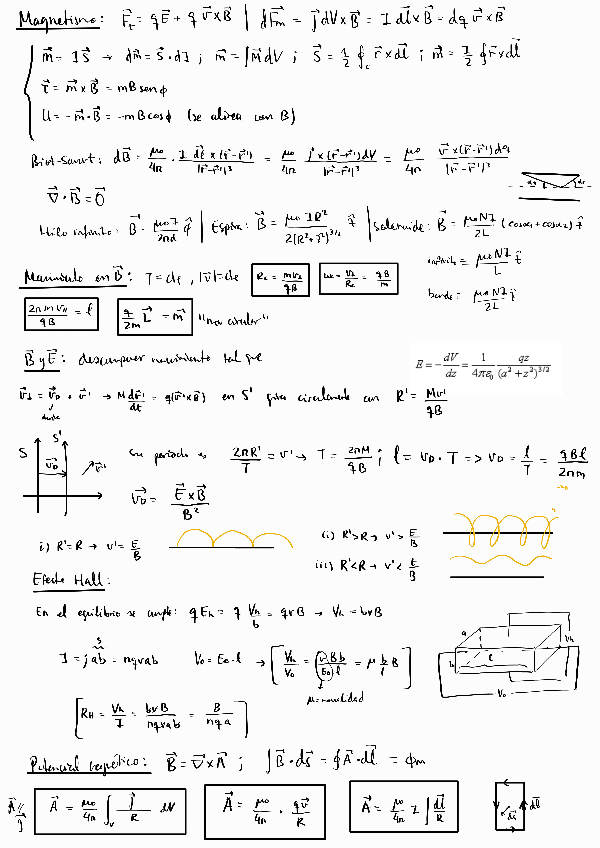 Magnetismo: F⃗_L = qE⃗ + q v⃗×B⃗ | dF⃗m = j⃗dV×B⃗ = I dl⃗×B⃗ = dq v⃗×B⃗
m⃗ = I S⃗ → dm⃗ = S⃗·dI ; m⃗ = ∫M⃗dV ; S⃗ = 1/2 ∮_c r⃗×dl⃗ ; m⃗ = I/2 ∮ r⃗×dl⃗
τ⃗ = m⃗×B⃗ = mB senϕ
U = -m⃗·B⃗ = -mB cosϕ (se alinea con B)
Biot-Savart: dB⃗ = μ₀/4π · I dl⃗×(r⃗-r⃗')/|r⃗-r⃗'|³ = μ₀/4π j⃗×(r⃗-r⃗')dV/|r⃗-r⃗'|³ = μ₀/4π v⃗×(r⃗-r⃗')dq/|r⃗-r⃗'|³
∇⃗·B⃗ = 0
Hilo infinito: B⃗ = μ₀I/2πd φ̂ | Espira: B⃗ = μ₀IR²/2(R²+z²)^3/2 ẑ | Solenoide: B⃗ = μ₀NI/2L (cosα₁+cosα₂) ẑ
infinito = μ₀NI/L ẑ
borde = μ₀NI/2L ẑ
Movimiento en B⃗: T = cte, |v⃗| = cte
Rc = mv⊥/qB
ωc = v⊥/Rc = qB/m
2πm v∥/qB = l
q/2m L⃗ = m⃗ "mov circular"
B⃗ y E⃗: descomponer movimiento tal que
E = -dV/dz = 1/4πε₀ qz/(a²+z²)^3/2
v⃗⊥ = v⃗_D + v⃗' → M dv⃗'/dt = q(v⃗'×B⃗) en S' gira circularmente con R' = Mv'/qB
S
S'
v⃗_D
v⃗'
Su periodo es 2πR'/T = v' → T = 2πM/qB ; l = v_D·T => v_D = l/T = qBl/2πm
v⃗_D = E⃗×B⃗/B²
i) R'=R → v' = E/B
ii) R'>R → v' > E/B
iii) R'<R → v' < E/B
Efecto Hall:
En el equilibrio se cumple: qE_h = q V_h/b = qvB → V_h = bvB
I = jab = nqvab
V₀ = E₀·l → [V_h/V₀ = vBb/E₀·l = μ b/l B]
μ = movilidad
[R_H = V_h/I = bvB/nqvab = B/nqa]
a
b
l
V_h
V₀
Potencial magnético: B⃗ = ∇⃗×A⃗ ; ∫B⃗·ds⃗ = ∮A⃗·dl⃗ = ϕm
A⃗ ∥ j⃗
A⃗ = μ₀/4π ∫_V j⃗/R dV
A⃗ = μ₀/4π · qv⃗/R
A⃗ = μ₀/4π I ∫ dl⃗/R
ds⃗
dl⃗